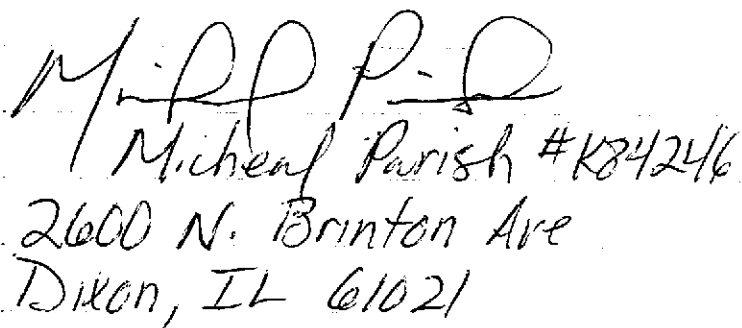 Micheal Parish
Micheal Parish #K84246
2600 N. Brinton Ave
Dixon, IL 61021